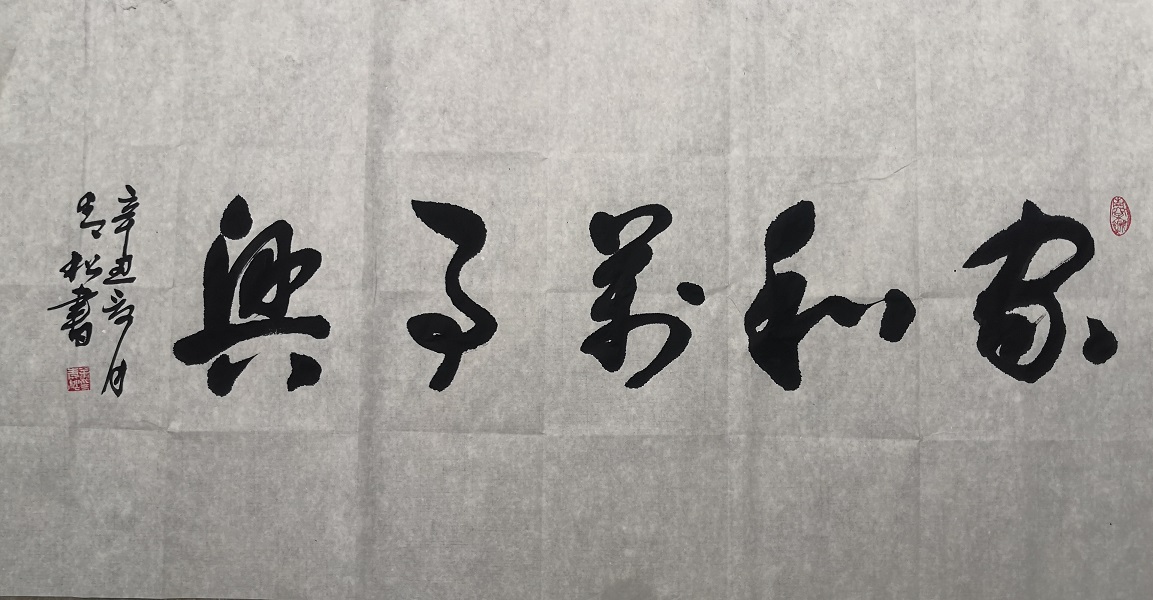 家和萬事興
辛丑年月
青松書